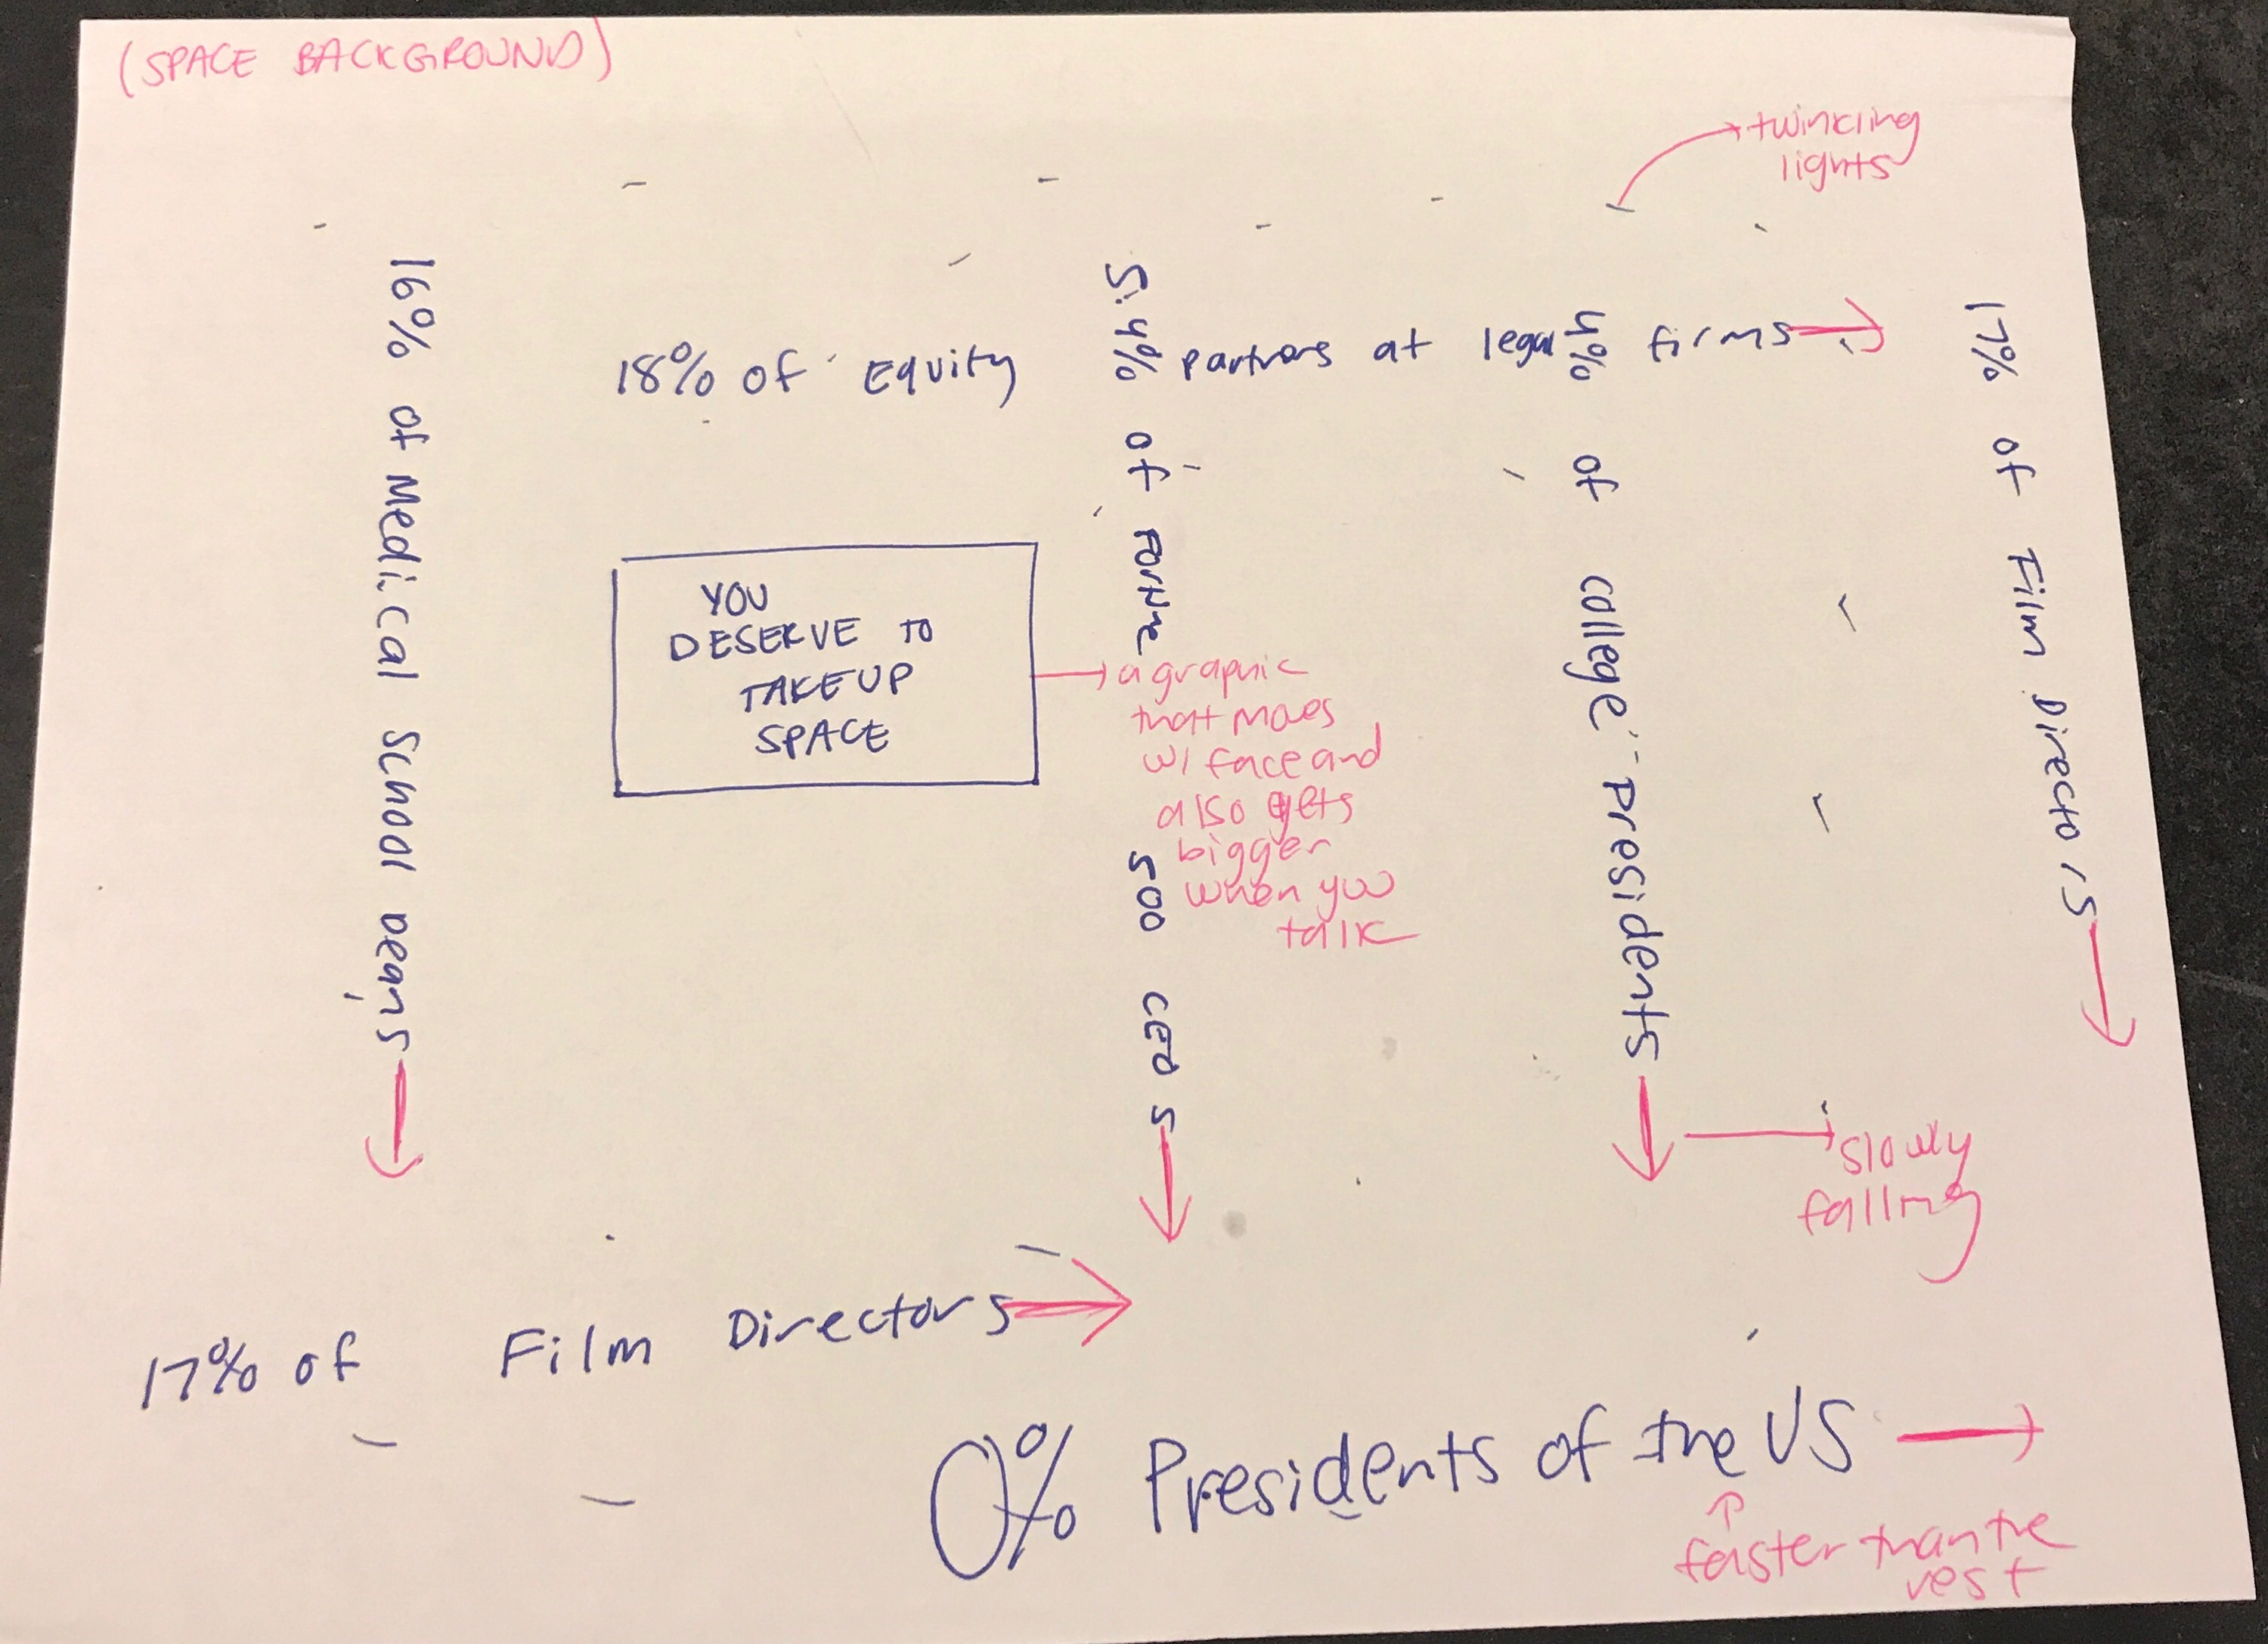 (SPACE BACKGROUND)
twinkling
lights
16% of Medical School Deans
18% of Equity partners at legal firms
5.4% of Fortune 500 CEOs
4% of college presidents
17% of Film Directors
YOU
DESERVE TO
TAKE UP
SPACE
a graphic
that moves
w/ face and
also gets
bigger
when you
talk
slowly
falling
17% of Film Directors
0% Presidents of the US
faster than the
rest